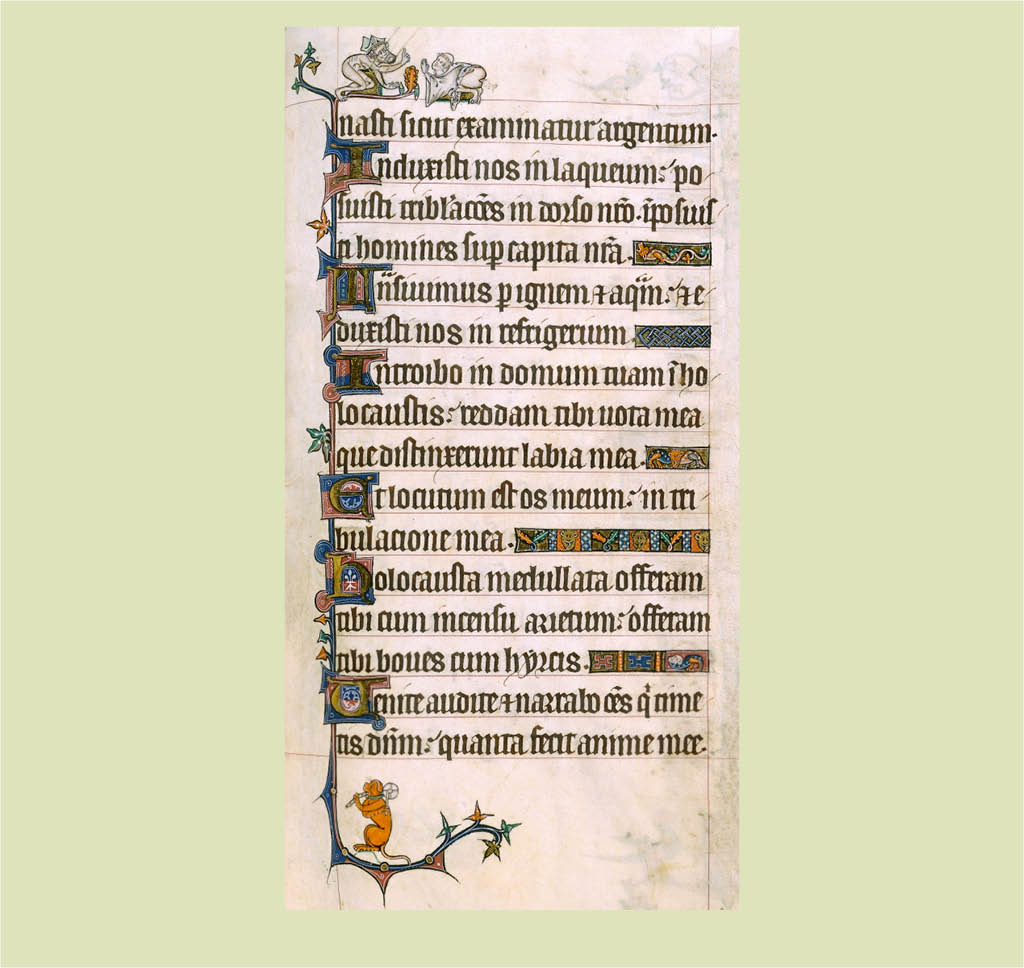 nasti sicut examinatur argentum·
Induxisti nos in laqueum: po
suisti tribl'acões in dorso nr̃o· ĩposuis
ti homines sup capita nr̃a·
ñsiuimus p ignem ⁊ aq̃m: ⁊ e
duxisti nos in refrigerium·
Introibo in domum tuam ĩ ho
locaustis: reddam tibi uota mea
que distinxerunt labia mea·
Et locutum est os meum: in tri
bulacione mea·
Holocausta medullata offeram
tibi cum incensu arietum: offeram
tibi boues cum hyrcis·
Uenite audite ⁊ narrabo õẽs q̃ time
tis dñm: quanta fecit anime mee·